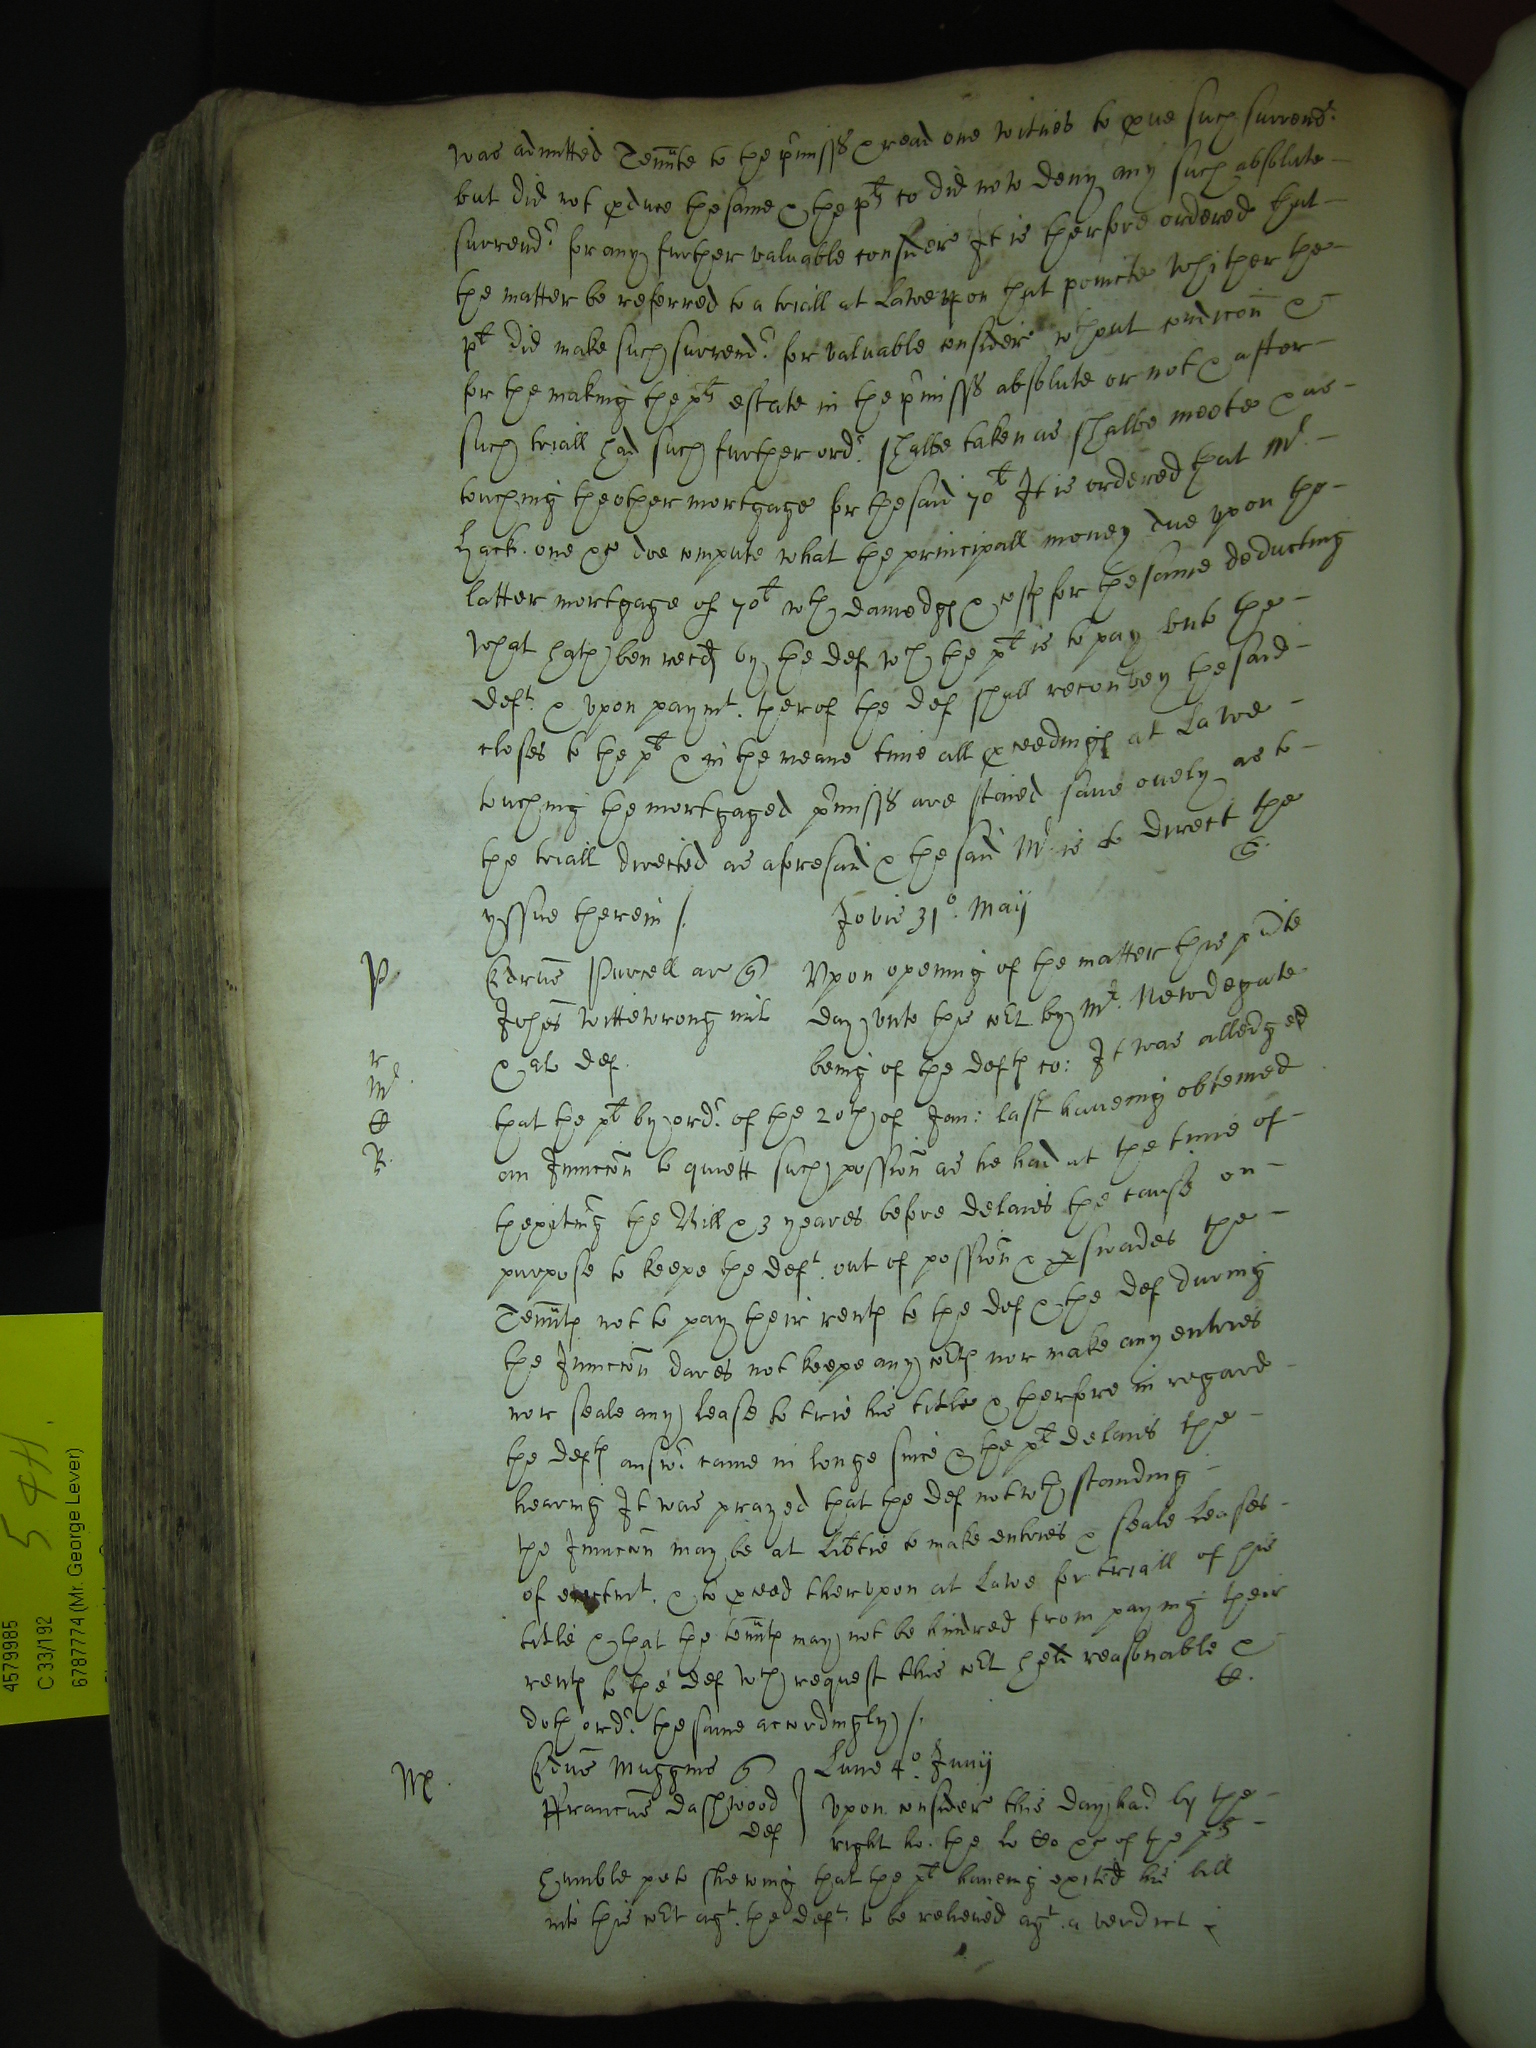 was admitted Tennte to the pmisss & read one witnes to pve such surrendr
but did not pduce the same & the plts co did now deny any such absolute
surrendr for any further valuable consider It is therfore ordered that
the matter be referred to a triall at Lawe upon that pointe whither the
plt did make such surrendr for valuable consider wthout condicon &
for the making the plts estate in the pmisss absolute or not & after
such triall had such further ordr shalbe taken as shalbe meete & as
touching theother mortgage for the said 70l It is ordered that Mr
Hack. one &c doe compute what the principall money due upon the
latter mortgage of 70l wth damedges & costs for the same deducting
what hath ben recd by the def wch the plt is to pay unto the
deft & upon paymt therof the def shall reconvey the said
closes to the plt & in the meane time all pceedings at Lawe
touching the mortgaged pmisss are staied save onely as to
the triall directed as aforesaid & the said Mr is to direct the
yssue therein /.
Jovis 31o May
P
Edrus Purcell ar q Upon opening of the matter this pnte
Johes Wittewrong mil day unto this cort by Mr Newdegate
& al def being of the defts co: It was alledged
r
Mr
R
that the plt by ordr of the 20th of Jan: last haveing obteined
an Iniuccon to quiett such possion as he had at the time of
thexiting the Bill & 3 yeares before delaies the cause on
purpose to keepe the deft out of possion & pswades the
Tennts not to pay their rents to the def & the def during
the Iniuccon dares not keepe any corts nor make any entries
nor seale any lease to trie his title & therfore in regard
the defts answr came in longe since & the plt delaies the
hearing It was prayed that the def notwthstanding
the Iniuccon may be at Libtie to make entries & seale Leases
of eiectmt & to pceed therupon at Lawe for triall of his
title & that the tennts may not be hindred from paying their
rents to the def wch request this cort held reasonable &
doth ordr the same accordingly /.
Edrus Muggins q Lune 4o Junij
Franciscus Dashwood Upon consider this day had by the
def right ho. the lo &c of the plts
humble peto shewing that the plt haveing exited his bill
into this cort agt the deft to be releived agt a verdict
4579985
C 33/192
6787774 (Mr. George Lever)